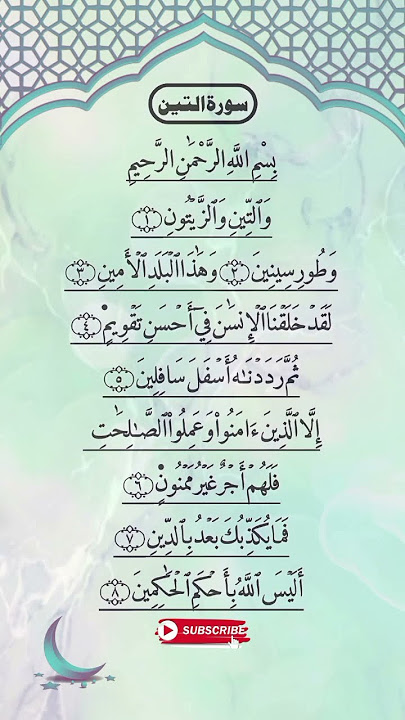 سورة التين
بِسْمِ اللَّهِ الرَّحْمَٰنِ الرَّحِيمِ
وَٱلتِّينِ وَٱلزَّيْتُونِ ١
وَطُورِ سِينِينَ ٢ وَهَٰذَا ٱلْبَلَدِ ٱلْأَمِينِ ٣
لَقَدْ خَلَقْنَا ٱلْإِنسَٰنَ فِىٓ أَحْسَنِ تَقْوِيمٍ ٤
ثُمَّ رَدَدْنَٰهُ أَسْفَلَ سَافِلِينَ ٥
إِلَّا ٱلَّذِينَ ءَامَنُوا۟ وَعَمِلُوا۟ ٱلصَّٰلِحَٰتِ
فَلَهُمْ أَجْرٌ غَيْرُ مَمْنُونٍ ٦
فَمَا يُكَذِّبُكَ بَعْدُ بِٱلدِّينِ ٧
أَلَيْسَ ٱللَّهُ بِأَحْكَمِ ٱلْحَٰكِمِينَ ٨
SUBSCRIBE